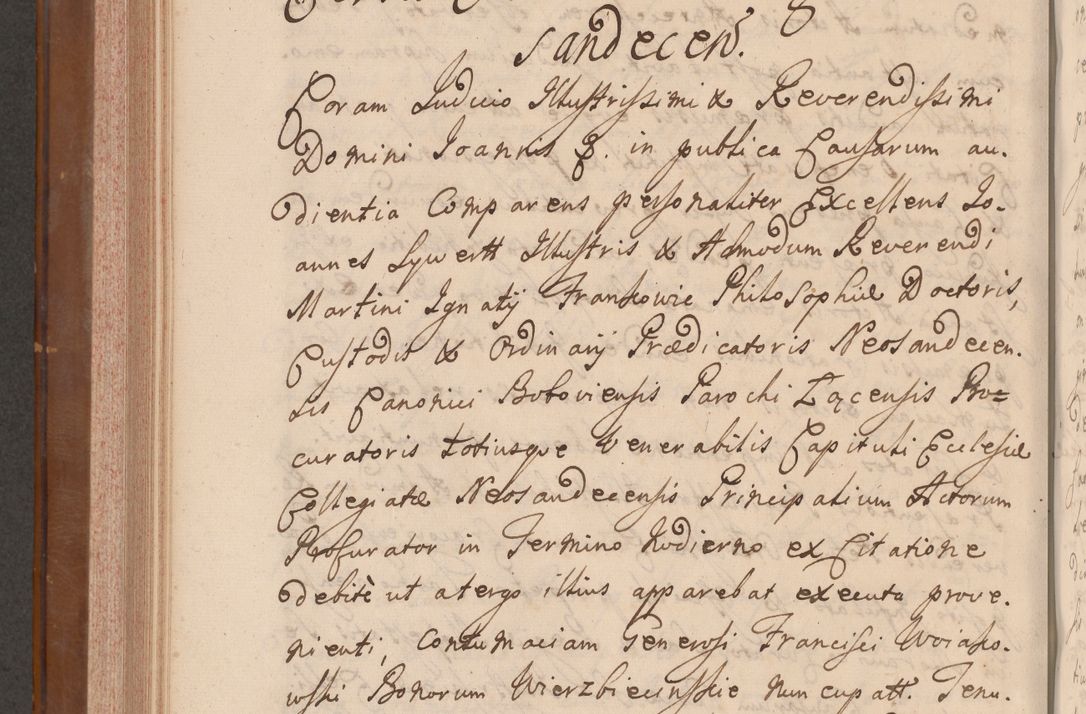 Sandecen.
Coram Judicio Illustrissimi & Reverendissimi
Domini Joannis P. in publica Causarum au-
dientia Comparens personaliter Excellens Jo-
annes Sywertt Illustris & Admodum Reverendi
Martini Ignatij Frankowic Philosophiæ Doctoris,
Custodis & Ordinarij Prædicatoris Neosandecen-
sis Canonici Boboviensis Parochi Łącensis Pro=
curatoris totiusque Venerabilis Capituli Ecclesiæ
Collegiatæ Neosandecensis Principalium Actorum
Procurator in Termino hodierno ex Citatione
debitè ut atergo illius apparebat executa prove-
nienti, Contumaciam Generosi Francisci Woiako-
wski Bonorum Wierzbiecinsskie nuncupatt. Tenu-